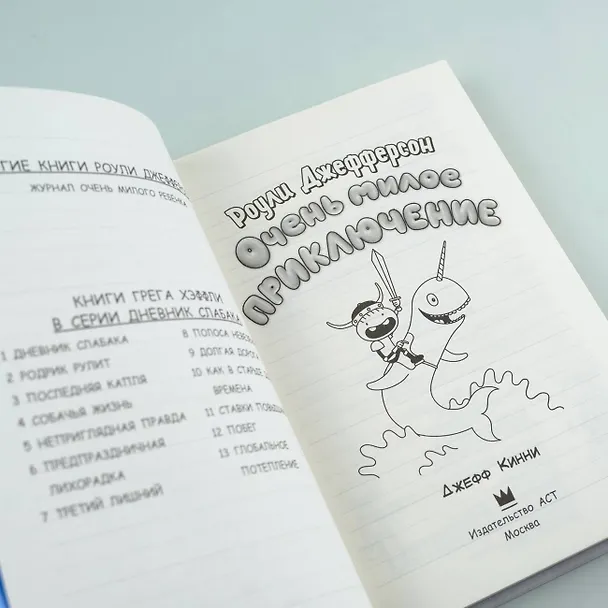 КНИГИ РОУЛИ
ЖУРНАЛ ОЧЕНЬ МИЛОГО РЕБЕНКА
КНИГИ ГРЕГА ХЭФФЛИ
В СЕРИИ ДНЕВНИК СЛАБАКА
1 ДНЕВНИК СЛАБАКА
2 РОДРИК РУЛИТ
3 ПОСЛЕДНЯЯ КАПЛЯ
4 СОБАЧЬЯ ЖИЗНЬ
5 НЕПРИГЛЯДНАЯ ПРАВДА
6 ПРЕДПРАЗДНИЧНАЯ
ЛИХОРАДКА
7 ТРЕТИЙ ЛИШНИЙ
8 ПОЛОСА
9 ДОЛГАЯ
10 КАК В
ВРЕМЕНА
11 СТАВКИ
12 ПОБЕГ
13 ГЛОБАЛЬНОЕ
ПОТЕПЛЕНИЕ
Роули Джефферсон
Очень милое
ПРИКЛЮЧЕНИЕ
Джефф Кинни
Издательство АСТ
Москва